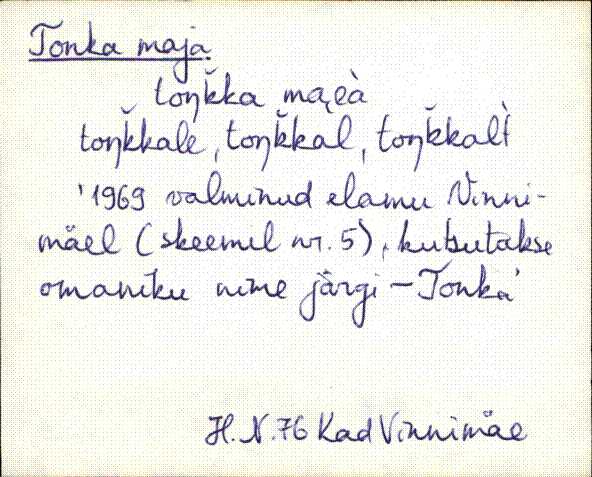 Tonka maja
toŋk̆ka mai̯eà
toŋk̆kale, toŋk̆kal, toŋk̆kalt
'1969 valminud elamu Vinni-
mäel (skeemil nr. 5), kutsutakse
omaniku nime järgi – Tonka'
H. N. 76 Kad Vinnimäe